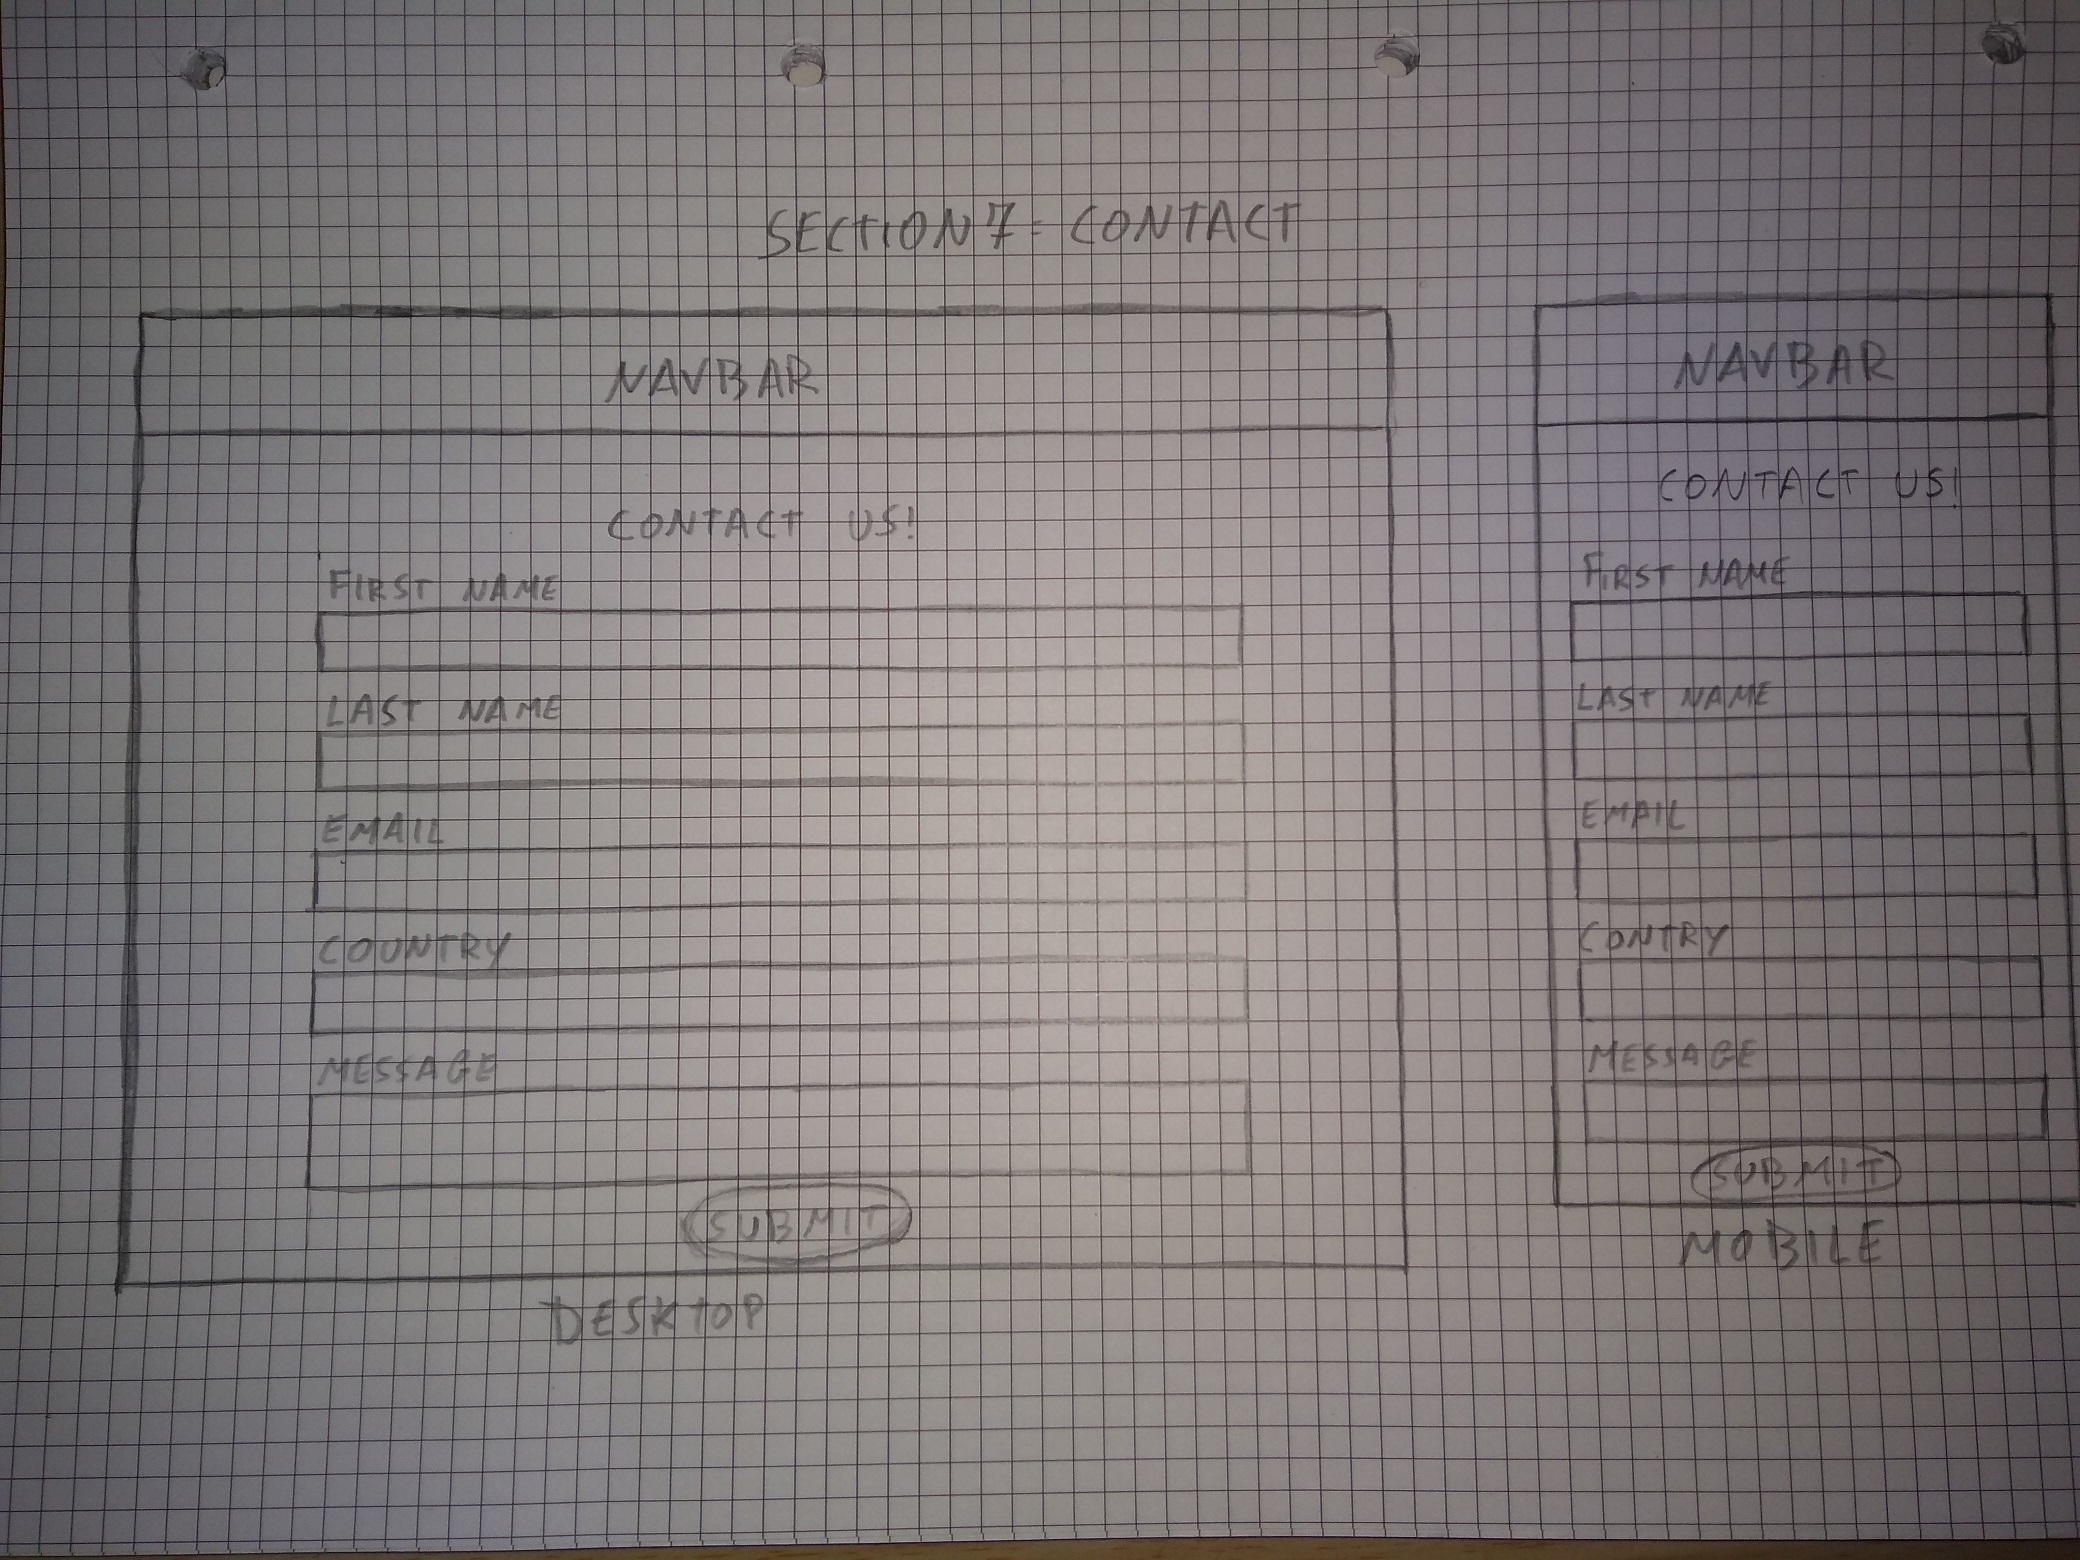 SECTION 7 - CONTACT
NAVBAR
CONTACT US!
FIRST NAME
LAST NAME
EMAIL
COUNTRY
MESSAGE
SUBMIT
DESKTOP
NAVBAR
CONTACT US!
FIRST NAME
LAST NAME
EMAIL
CONTRY
MESSAGE
SUBMIT
MOBILE